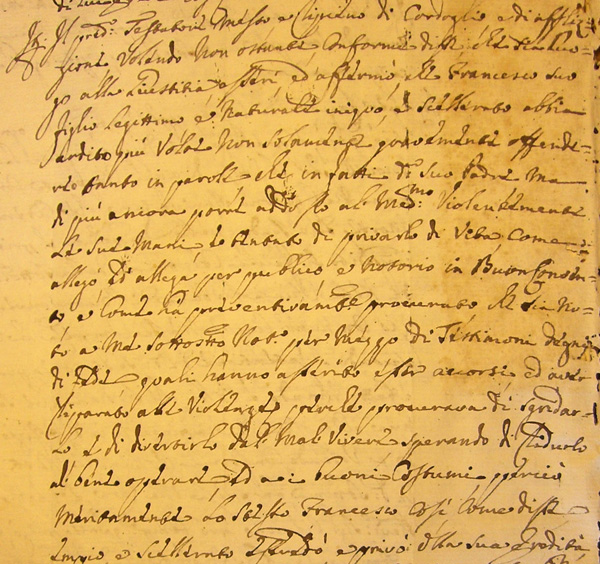 Il pred.º Testatore Mesto e Ripieno di Cordoglio e di afflit-
zione Volendo Non ostante Conforme disse che sia luo-
go alla Giustitia, asserì, ed affermò, che Francesco suo
figlio legittimo e Naturale iniquo, e scellerato abbia
ardito più Volte Non solamente gravemente offende-
re tanto in parole che in fatti d.º suo Padre Ma
di più ancora porre addosso al Med.mo Violentemente
Le sue Mani, e tentato di privarlo di Vita, Come
allegò ed allega per publico e Notorio in Buonconven-
to e Come ha preventivamte procurato che sia No-
to a Me sottostto Not.º per Mezzo di Testimoni degni
di Fede quali hanno asserito esser accorsi ed aver
Riparato alle Violenze perche procurava di sgridar-
lo e di divertirlo dal Mal Vivere sperando di Ridurlo
al bene operare ed a i buoni Costumi perciò
Meritamente lo stesso Francesco Così Come disse
empio e scellerato eseredò e privò della sua Eredità